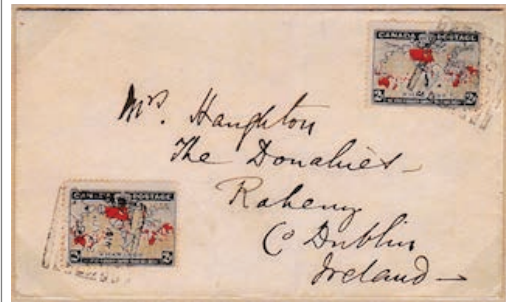 CANADA POSTAGE
Mrs. Haughton
The Donahies
Raheny
Co Dublin
Ireland
CANADA POSTAGE